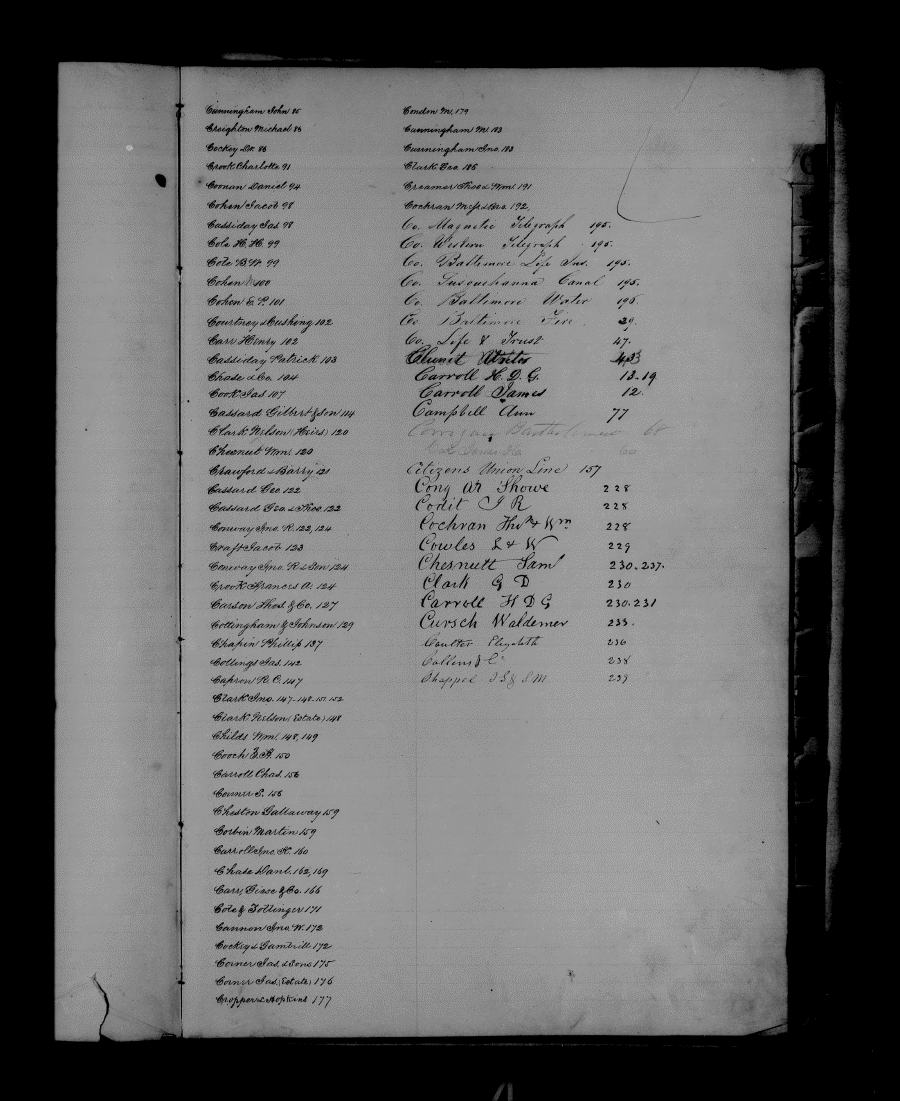 Cunningham John 86
Creighton Michael 86
Cockey Dr. 88
Crook Charlotte 91
Coonan Daniel 94
Cohen Jacob 98
Cassiday Jas. 98
Cole H. H. 99
Cole B. W. 99
Cohen 100
Cohen E. P. 101
Courtney & Cushing 102
Carr Henry 102
Cassiday Patrick 103
Chase & Co. 104
Cook Jas 107
Cassard Gilbert & Son 114
Clark Nelson (Heirs) 120
Chesnut Wm. 120
Crawford & Barry 121
Cassard Geo. 122
Cassard Geo. & Thos. 122
Conway Jno. R. 122, 124
Craft Jacob 123
Conway Jno. R. & Son 124
Crook Frances A. 124
Carson Thos. & Co. 127
Cottingham & Johnson 129
Chapin Phillip 137
Collings Jas. 142
Capron R. C. 147
Clark Jno. 147-148-151-152
Clark Nelson (Estate) 148
Childs Wm. 148, 149
Cooch 150
Carroll Chas. 156
Conner S. 156
Cheston Gallaway 159
Corbin Martin 159
Carroll Jno. K. 160
Chase Danl. 162, 169
Carr, Giese & Co. 166
Cole & Tottinger 171
Cannon Jno. W. 172
Cockey & Gambrill 172
Corner Jas. & Sons 175
Corner Jas. (Estate) 176
Cropper & Hopkins 177
Condon M. 179
Cunningham M. 183
Cunningham Jno. 183
Clark Geo. 186
Creamer Thos & Wm. 191
Cochran 192,
Co. Magnetic Telegraph 195.
Co. Western Telegraph 195.
Co. Baltimore Life Ins. 195.
Co. Susquehanna Canal 195.
Co. Baltimore Water 196
Co. Baltimore Fire. 29.
Co. Life & Trust 47.
Carroll H. D. G. 13-19
Carroll James 12.
Campbell Ann 77
Corrigan Bartholomew 60
Citizens Union Line 157
Cong at Showe 228
Codit J R 228
Cochran Thos & Wm 228
Cowles L & W 229
Chesnutt Saml 230.237.
Clark G D 230
Carroll H D G 230.231
Cursch Waldemer 233.
Coulter Elizabeth 236
Collins & Co 238
Chappel J S & S M 239